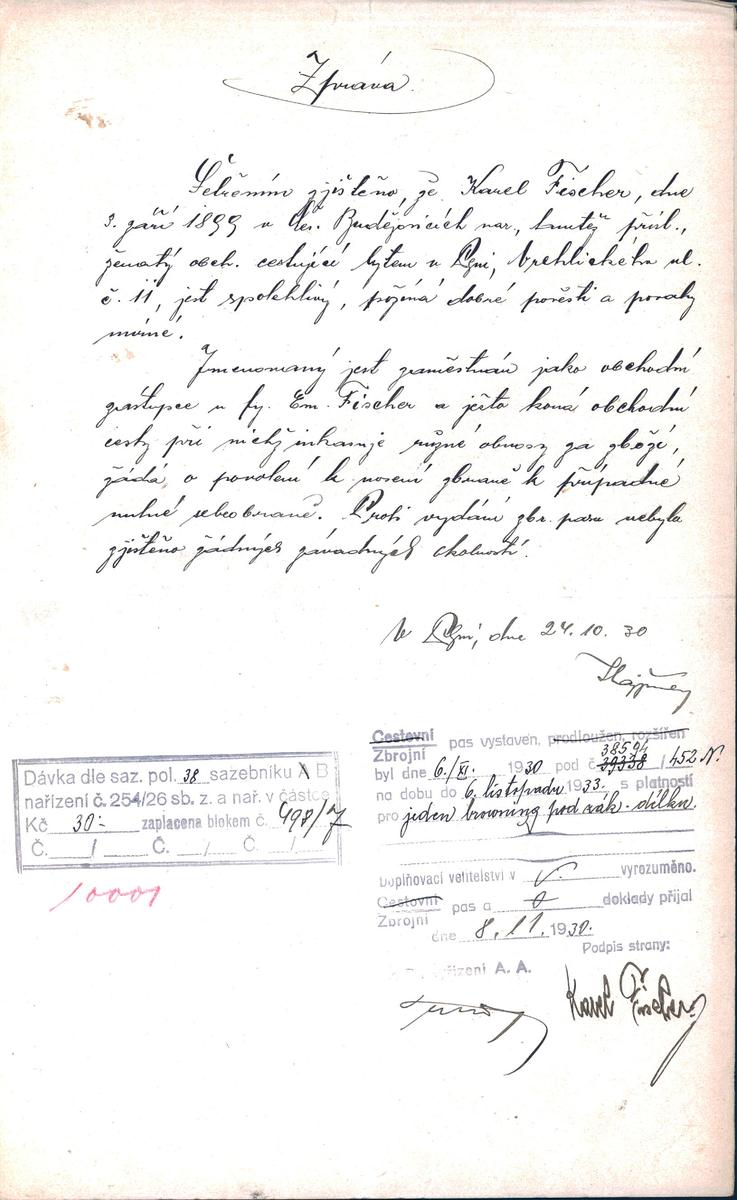 Zpráva.
Šetřením zjištěno, že Karel Fischer, dne
3. září 1899 v Čes. Budějovicích nar., tamtéž přísl.,
ženatý obch. cestující bytem v Plzni, Vrchlického ul.
č. 11, jest spolehlivý, požívá dobré pověsti a povahy
mírné.
Jmenovaný jest zaměstnán jako obchodní
zástupce u fy. Em. Fischer a ježto koná obchodní
cesty při nichž inkasuje různé obnosy za zboží,
žádá o povolení k nošení zbraně k případné
nutné sebeobraně. Proti vydání zbr. pasu nebylo
zjištěno žádných závadných okolností.
V Plzni, dne 24. 10. 30
Cestovní
Zbrojní pas vystaven, prodloužen, rozšířen
38594
byl dne 6./XI. 1930 pod č. 39338 / 452 N.
na dobu do 6. listopadu 1933. s platností
pro jeden browning pod zák. délku.
Dávka dle saz. pol. 38 sazebníku A B
nařízení č. 254/26 sb. z. a nař. v částce
Kč 30.- zaplacena blokem č. 498/7
Č. / Č. / Č.
10001
Doplňovací velitelství v vyrozuměno.
Cestovní
Zbrojní pas a doklady přijal
dne 8. 11. 1930.
Podpis strany:
vyřízení A. A.
Karel Fischer